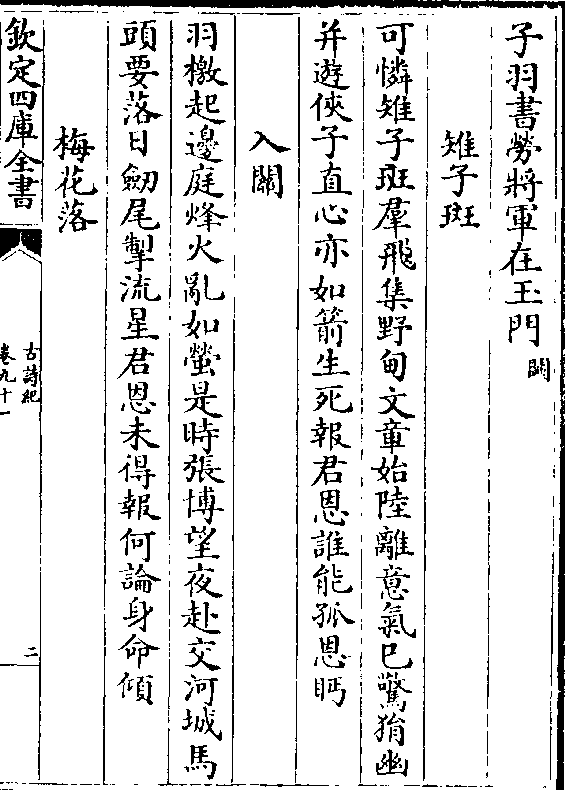 子羽書勞將軍在玉門關
雉子斑
可憐雉子斑羣飛集野甸文章始陸離意氣已驚狷幽
并遊俠子直心亦如箭生死報君恩誰能孤恩眄
入關
羽檄起邊庭烽火亂如螢是時張博望夜赴交河城馬
頭要落日劒尾掣流星君恩未得報何論身命傾
梅花落
欽定四庫全書
古詩紀
卷九十一
二